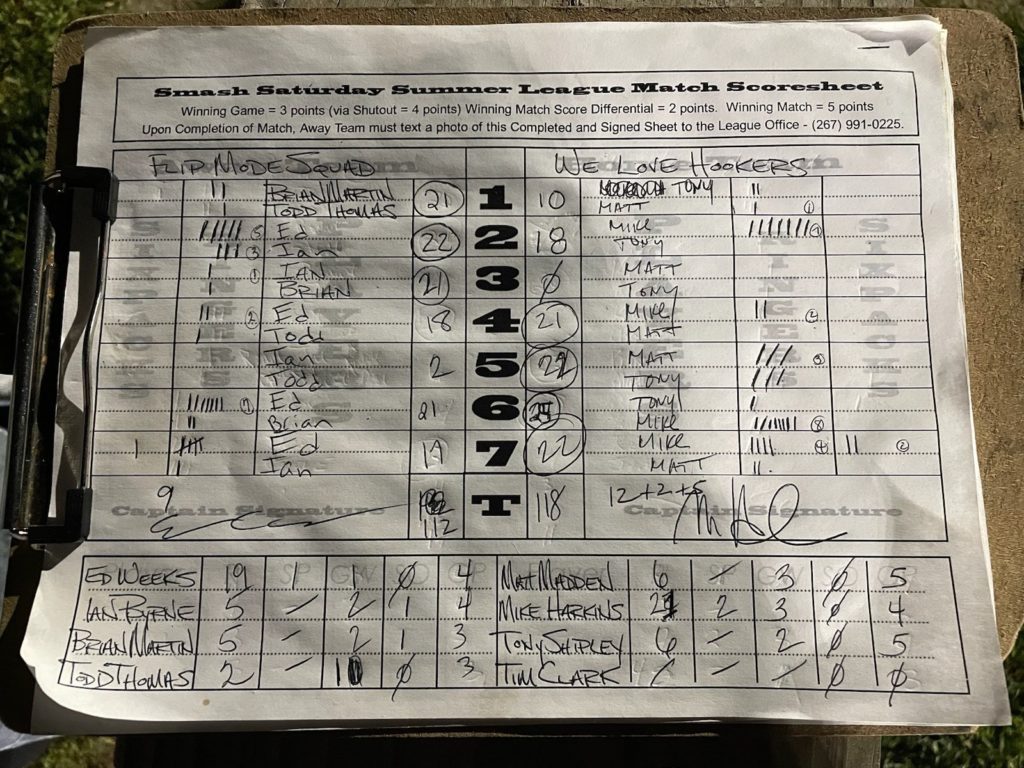 Smash Saturday Summer League Match Scoresheet
Winning Game = 3 points (via Shutout = 4 points) Winning Match Score Differential = 2 points. Winning Match = 5 points
Upon Completion of Match, Away Team must text a photo of this Completed and Signed Sheet to the League Office - (267) 991-0225.
FLIP MODE SQUAD WE LOVE HOOKERS
BRIAN MARTIN 21 1 10 TONY
TODD THOMAS MATT 1
5 Ed 22 2 18 MIKE
3 Ian TONY
1 IAN 21 3 0 MATT
BRIAN TONY
2 Ed 18 4 21 MIKE 2
Todd MATT
Ian 2 5 22 MATT
Todd TONY
7 Ed 21 6 TONY
Brian MIKE 8
1 Ed 19 7 22 MIKE 4 2
Ian MATT
9 T 118 12+2+5
Captain Signature 112 Captain Signature
ED WEEKS 19 GW 0 4 MATT MADDEN 6 - 3 0 5
IAN BYRNE 5 - 2 1 4 MIKE HARKINS 2 3 0 4
BRIAN MARTIN 5 - 2 1 3 TONY SHIPLEY 6 - 2 0 5
TODD THOMAS 2 - 1 0 3 TIM CLARK - - 0 0